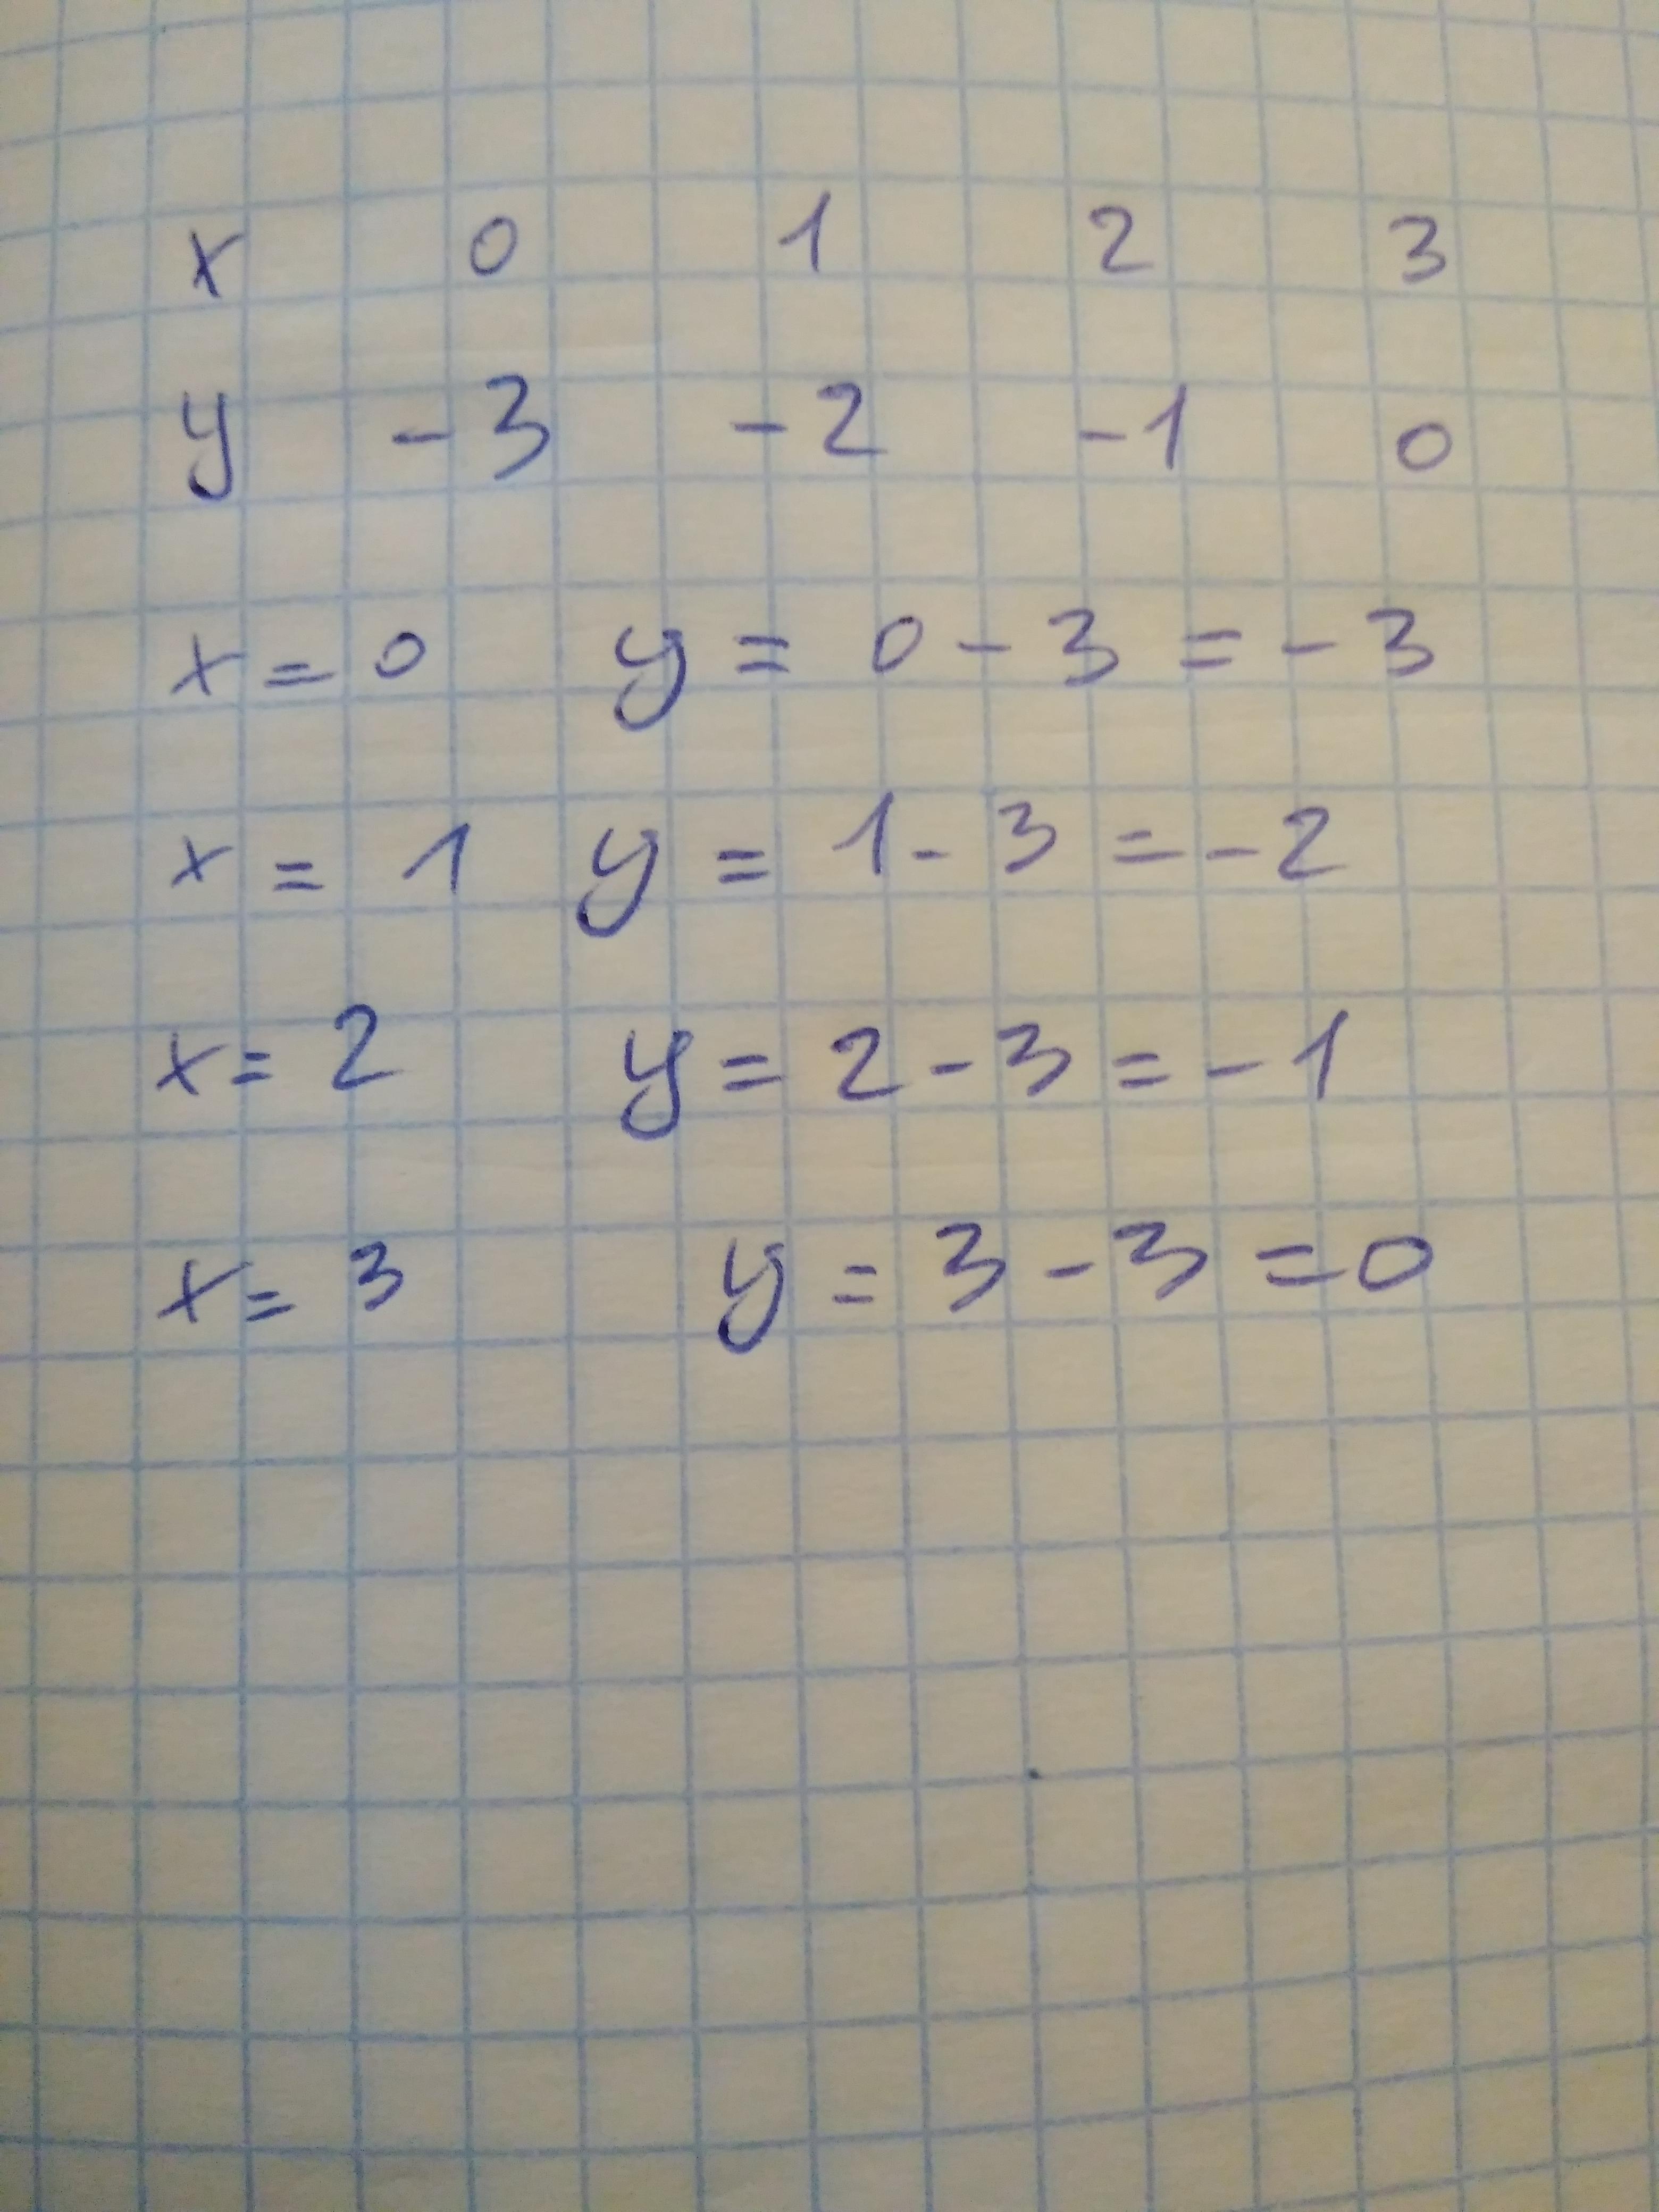 x 0 1 2 3
y -3 -2 -1 0
x = 0 y = 0 - 3 = - 3
x = 1 y = 1 - 3 = - 2
x = 2 y = 2 - 3 = - 1
x = 3 y = 3 - 3 = 0